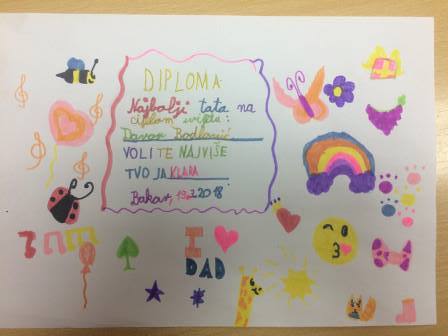 DIPLOMA
Najbolji tata na
cijlom svijetu:
Davor Bodlović
VOLI TE NAJVIŠE
TVOJA KLARA
Bakar, 19.3.2018
I
DAD